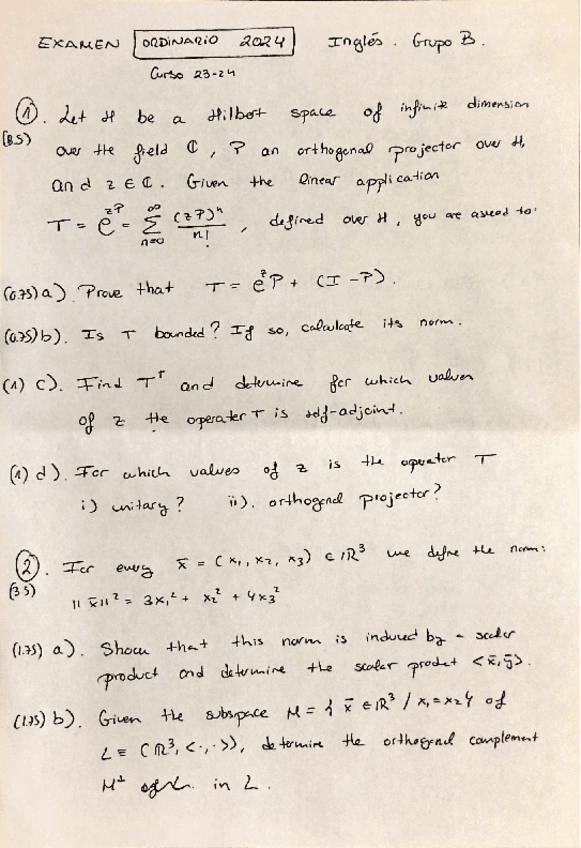 EXAMEN ORDINARIO 2024 Inglés. Grupo B.
Curso 23-24
①. Let H be a Hilbert space of infinite dimension
over the field ℂ, P an orthogonal projector over H,
and z ∈ ℂ. Given the linear application
T = e^{zP} = ∑_{n=0}^{∞} (zP)^n / n! , defined over H, you are asked to:
(0.75) a) Prove that T = e^z P + (I - P).
(0.75) b). Is T bounded? If so, calculate its norm.
(1) c). Find T† and determine for which values
of z the operator T is self-adjoint.
(1) d). For which values of z is the operator T
i) unitary? ii). orthogonal projector?
②. For every x̄ = (x₁, x₂, x₃) ∈ ℝ³ we define the norm:
(3.5) ||x̄||² = 3x₁² + x₂² + 4x₃²
(1.75) a). Show that this norm is induced by a scalar
product and determine the scalar product <x̄,ȳ>.
(1.75) b). Given the subspace M = { x̄ ∈ ℝ³ / x₁ = x₂ } of
L ≡ (ℝ³, <·,·>), determine the orthogonal complement
M⊥ in L.